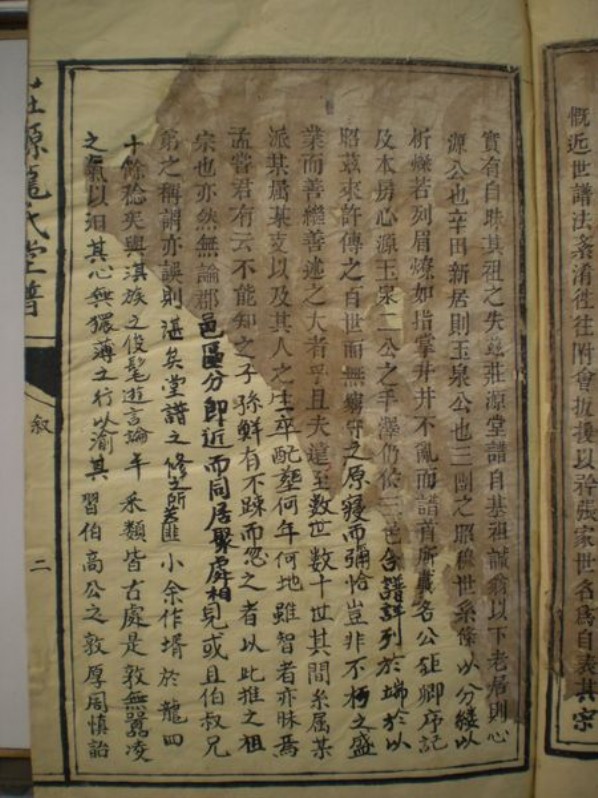 慨近世譜法紊淆徃徃附會扳援以矜張家世名爲自表其宗
實有自昧其祖之失兹莊源堂譜自基祖誠翁以下老居則心
源公也辛田新居則玉泉公也三劘之昭穆世系條以分縷以
析爍若列眉燎如指掌井井不亂而譜首所載名公鉅卿序記
及本房心源玉泉二公之手澤仍依三邑合譜詳列於端於以
昭茲來許傳之百世而無窮守之原寢而彌恰豈非不朽之盛
業而善繼善述之大者乎且夫遠至數世數十世其間系屬某
派某屬某支以及其人之生卒配塟何年何地雖智者亦昧焉
孟嘗君有云不能知之子孫鮮有不踈而忽之者以此推之祖
宗也亦然無論郡邑區分即近而同居聚處相見或且伯叔兄
弟之稱謂亦誤則湛矣堂譜之修之所㒵匪小余作壻於龍四
十餘稔矣與淇族之俊髦遊言論年釆類皆古處是敦無嚻凌
之氣以汨其心無獧薄之行以渝其習伯高公之敦厚周慎詒
莊源龍氏堂譜
叙
二